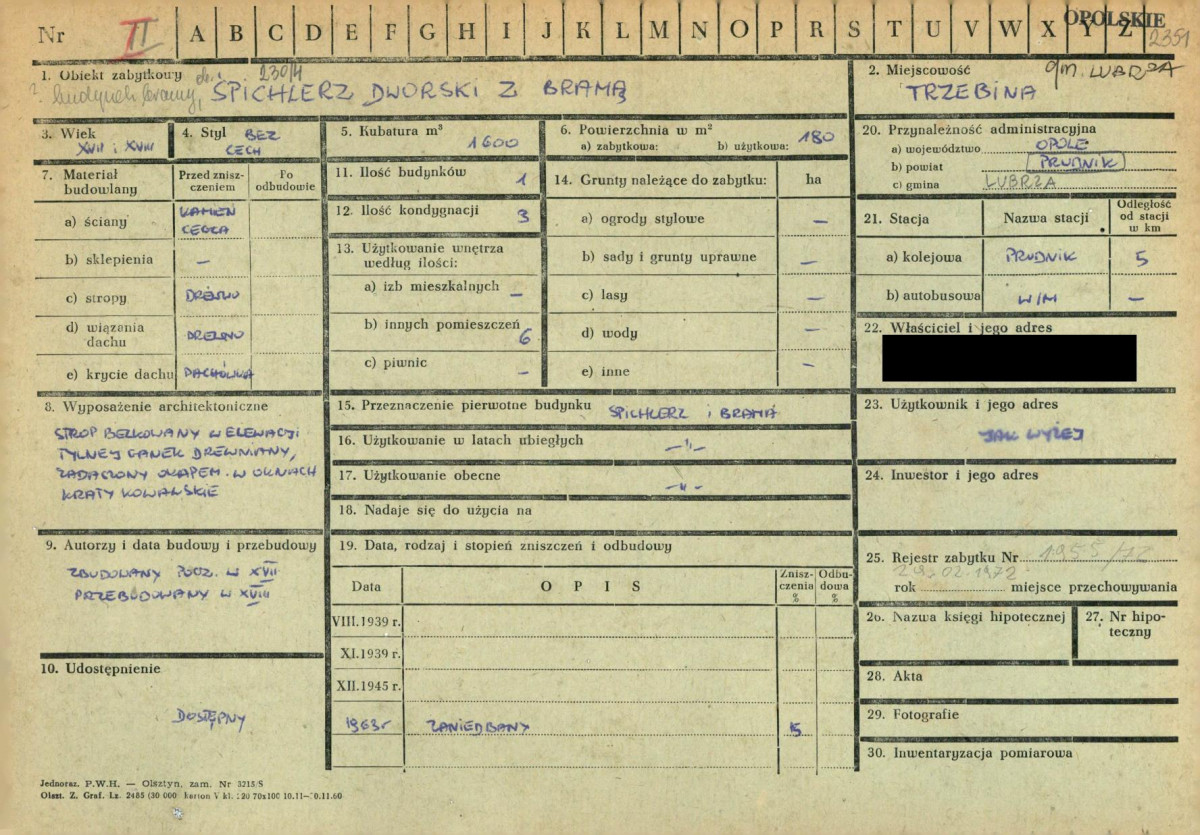 Nr II A B C D E F G H I J K L M N O P R S T U V W X Y Z OPOLSKIE
2351
1. Obiekt zabytkowy 230/4
? budynek bramy, ŚPICHLERZ DWORSKI Z BRAMĄ
2. Miejscowość gm. LUBRZA
TRZEBINA
3. Wiek
XVII i XVIII
4. Styl BEZ
CECH
5. Kubatura m³
1600
6. Powierzchnia w m²
a) zabytkowa: b) użytkowa: 180
7. Materiał budowlany
Przed zniszczeniem
Po odbudowie
a) ściany KAMIEŃ
CEGŁA
b) sklepienia –
c) stropy DREWNO
d) wiązania dachu DREWNO
e) krycie dachu DACHÓWKA
8. Wyposażenie architektoniczne
STROP BELKOWANY W ELEWACJI
TYLNEJ GANEK DREWNIANY,
ZADASZONY OKAPEM. W OKNACH
KRATY KOWALSKIE
9. Autorzy i data budowy i przebudowy
ZBUDOWANY POCZ. W XVII
PRZEBUDOWANY W XVIII
10. Udostępnienie
DOSTĘPNY
11. Ilość budynków 1
12. Ilość kondygnacji 3
13. Użytkowanie wnętrza
według ilości:
a) izb mieszkalnych –
b) innych pomieszczeń 6
c) piwnic –
14. Grunty należące do zabytku: ha
a) ogrody stylowe –
b) sady i grunty uprawne –
c) lasy –
d) wody –
e) inne –
15. Przeznaczenie pierwotne budynku SPICHLERZ i BRAMA
16. Użytkowanie w latach ubiegłych –"–
17. Użytkowanie obecne –"–
18. Nadaje się do użycia na
19. Data, rodzaj i stopień zniszczeń i odbudowy
Data OPIS Zniszczenia % Odbudowa %
VIII.1939 r.
XI.1939 r.
XII.1945 r.
1963r ZANIEDBANY 15
20. Przynależność administracyjna
a) województwo OPOLE
b) powiat PRUDNIK
c) gmina LUBRZA
21. Stacja Nazwa stacji Odległość od stacji w km
a) kolejowa PRUDNIK 5
b) autobusowa W/M –
22. Właściciel i jego adres
23. Użytkownik i jego adres
JAK WYŻEJ
24. Inwestor i jego adres
25. Rejestr zabytku Nr 1955/72
29.02.1972
rok miejsce przechowywania
26. Nazwa księgi hipotecznej
27. Nr hipoteczny
28. Akta
29. Fotografie
30. Inwentaryzacja pomiarowa
Jednoraz. P.W.H. — Olsztyn, zam. Nr 3215/S
Olszt. Z. Graf. Lz. 2485 (30 000 karton V kl. 120 70x100 10.11—